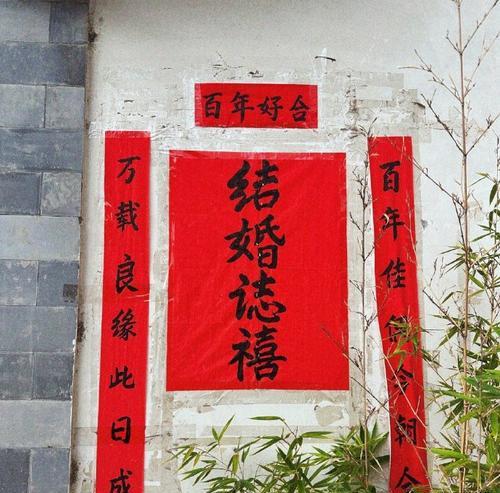 百年好合
百年佳偶今朝合
结婚誌禧
万载良缘此日成